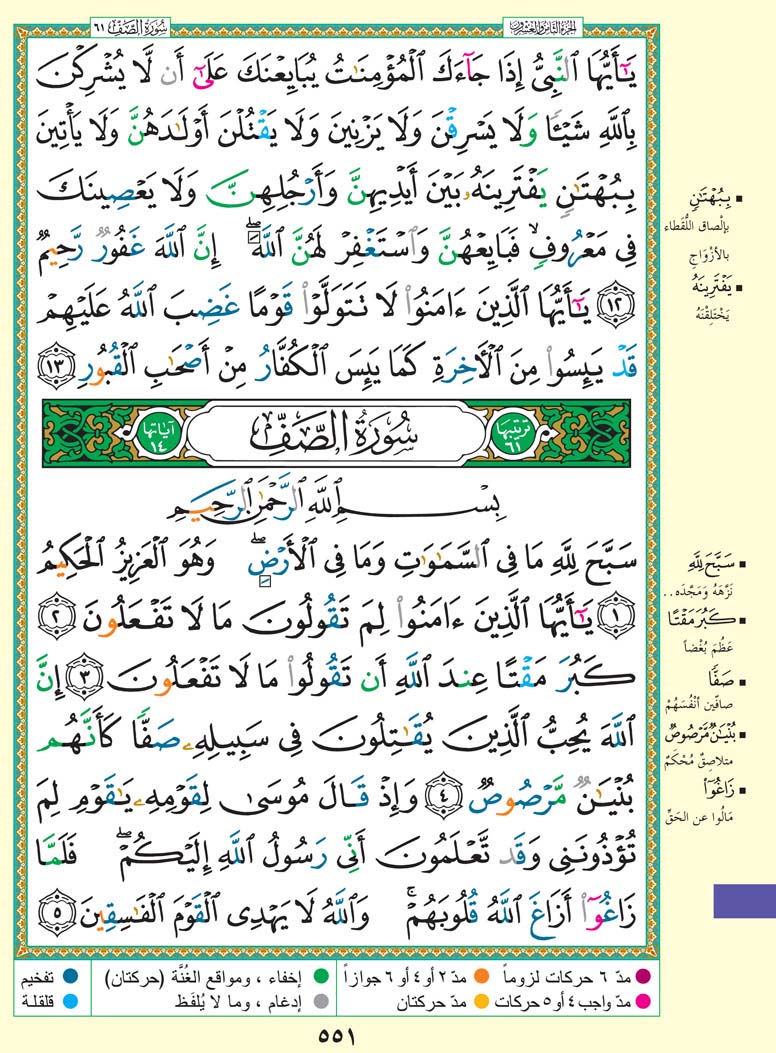 الجزء الثامن والعشرون
سُورَةُ الصَّفِّ ٦١
يَـٰٓأَيُّهَا ٱلنَّبِىُّ إِذَا جَآءَكَ ٱلْمُؤْمِنَـٰتُ يُبَايِعْنَكَ عَلَىٰٓ أَن لَّا يُشْرِكْنَ
بِٱللَّهِ شَيْـًٔا وَلَا يَسْرِقْنَ وَلَا يَزْنِينَ وَلَا يَقْتُلْنَ أَوْلَـٰدَهُنَّ وَلَا يَأْتِينَ
بِبُهْتَـٰنٍ يَفْتَرِينَهُۥ بَيْنَ أَيْدِيهِنَّ وَأَرْجُلِهِنَّ وَلَا يَعْصِينَكَ
فِى مَعْرُوفٍ ۙ فَبَايِعْهُنَّ وَٱسْتَغْفِرْ لَهُنَّ ٱللَّهَ ۖ إِنَّ ٱللَّهَ غَفُورٌ رَّحِيمٌ
١٢ يَـٰٓأَيُّهَا ٱلَّذِينَ ءَامَنُوا۟ لَا تَتَوَلَّوْا۟ قَوْمًا غَضِبَ ٱللَّهُ عَلَيْهِمْ
قَدْ يَئِسُوا۟ مِنَ ٱلْـَٔاخِرَةِ كَمَا يَئِسَ ٱلْكُفَّارُ مِنْ أَصْحَـٰبِ ٱلْقُبُورِ ١٣
ترتيبها ٦١
سُورَةُ الصَّفِّ
آياتها ١٤
بِسْمِ ٱللَّهِ ٱلرَّحْمَـٰنِ ٱلرَّحِيمِ
سَبَّحَ لِلَّهِ مَا فِى ٱلسَّمَـٰوَٰتِ وَمَا فِى ٱلْأَرْضِ ۖ وَهُوَ ٱلْعَزِيزُ ٱلْحَكِيمُ
١ يَـٰٓأَيُّهَا ٱلَّذِينَ ءَامَنُوا۟ لِمَ تَقُولُونَ مَا لَا تَفْعَلُونَ ٢
كَبُرَ مَقْتًا عِندَ ٱللَّهِ أَن تَقُولُوا۟ مَا لَا تَفْعَلُونَ ٣ إِنَّ
ٱللَّهَ يُحِبُّ ٱلَّذِينَ يُقَـٰتِلُونَ فِى سَبِيلِهِۦ صَفًّا كَأَنَّهُم
بُنْيَـٰنٌ مَّرْصُوصٌ ٤ وَإِذْ قَالَ مُوسَىٰ لِقَوْمِهِۦ يَـٰقَوْمِ لِمَ
تُؤْذُونَنِى وَقَد تَّعْلَمُونَ أَنِّى رَسُولُ ٱللَّهِ إِلَيْكُمْ ۖ فَلَمَّا
زَاغُوٓا۟ أَزَاغَ ٱللَّهُ قُلُوبَهُمْ ۚ وَٱللَّهُ لَا يَهْدِى ٱلْقَوْمَ ٱلْفَـٰسِقِينَ ٥
بِبُهْتَـٰنٍ
بإلْصاق اللُّقَطاء
بالأزْوَاجِ
يَفْتَرِينَهُ
يَخْتَلِقْنَهُ
سَبَّحَ لِلَّهِ
نَزَّهَهُ وَمَجَّدَه..
كَبُرَ مَقْتًا
عَظُمَ بُغْضاً
صَفًّا
صافّين أنْفُسَهُمْ
بُنْيَـٰنٌ مَّرْصُوصٌ
متلاصِقٌ مُحْكَمٌ
زَاغُوٓا۟
مَالُوا عن الحَقِّ
مدّ ٦ حركات لزوماً
مدّ ٢ أو ٤ أو ٦ جوازاً
إخفاء ، ومواقع الغُنَّة (حركتان)
تفخيم
مدّ واجب ٤ أو ٥ حركات
مدّ حركتان
إدغام ، وما لا يُلفَظ
قلقلة
٥٥١